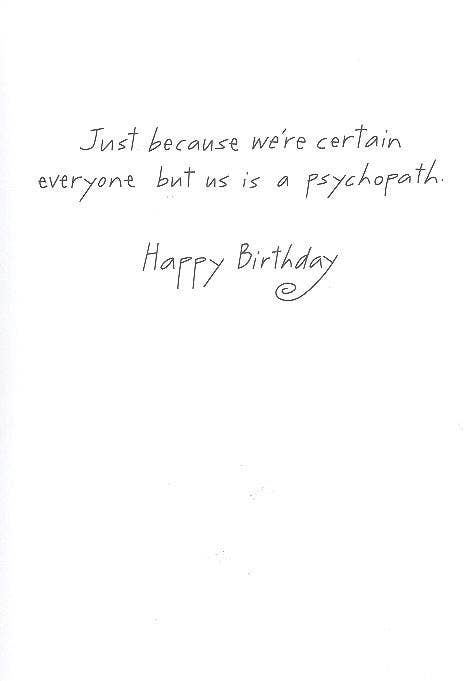 Just because we're certain
everyone but us is a psychopath.
Happy Birthday